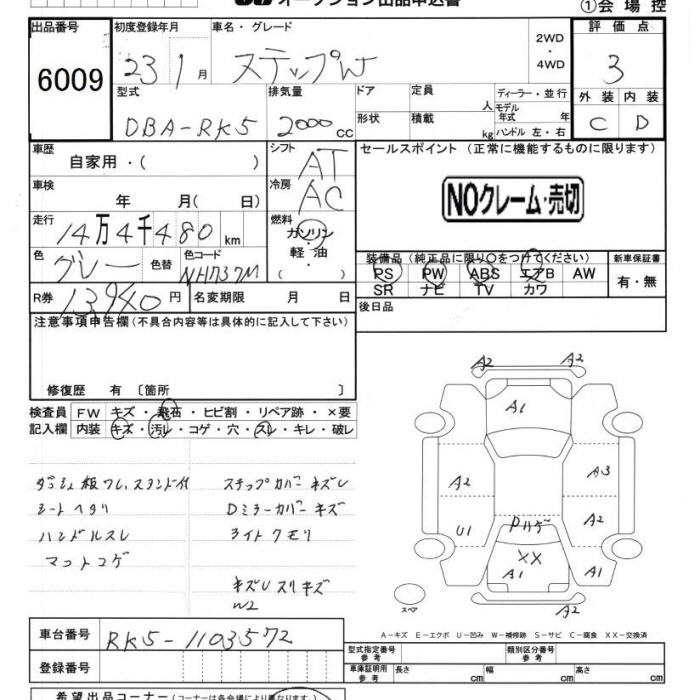 オークション出品申込書
①会場控
出品番号
6009
初度登録年月
23 1月
車名・グレード
ステップW
2WD
・
4WD
評価点
3
型式
DBA-RK5
排気量
2000cc
ドア
定員
人
ディーラー・並行
モデル年式 年
形状
積載
kg
ハンドル 左・右
外装 内装
C D
車歴
自家用・( )
シフト
AT
セールスポイント(正常に機能するものに限ります)
車検
年 月( 日)
冷房
AC
NOクレーム・売切
走行
14万4千480km
燃料
ガソリン
・
軽油
・
( )
色
グレー
色替
色コード
NH737M
装備品(純正品に限り○をつけてください)
PS PW ABS エアB AW
SR ナビ TV カワ
新車保証書
有・無
R券
13940円
名変期限 月 日
後日品
注意事項申告欄(不具合内容等は具体的に記入して下さい)
修復歴 有 〔箇所 〕
検査員
記入欄
FW キズ・飛石・ヒビ割・リペア跡・×要
内装 キズ・汚レ・コゲ・穴・スレ・キレ・破レ
ステップカバーキズレ
シートヘタリ
Dミラーカバーキズ
ハンドルスレ
ライトクモリ
マットコゲ
キズレスリキズ
W2
A2 A2
A1
A2 A3
A2
U1
Dハゲ
XX
A1 A1
A2
スペア
A−キズ E−エクボ U−凹み W−補修跡 S−サビ C−腐食 XX−交換済
車台番号
RK5-1103572
登録番号
型式指定番号
参考
類別区分番号
参考
車庫証明用
参考
長さ cm
幅 cm
高さ cm
希望出品コーナー(コーナーは各会場により異なります)